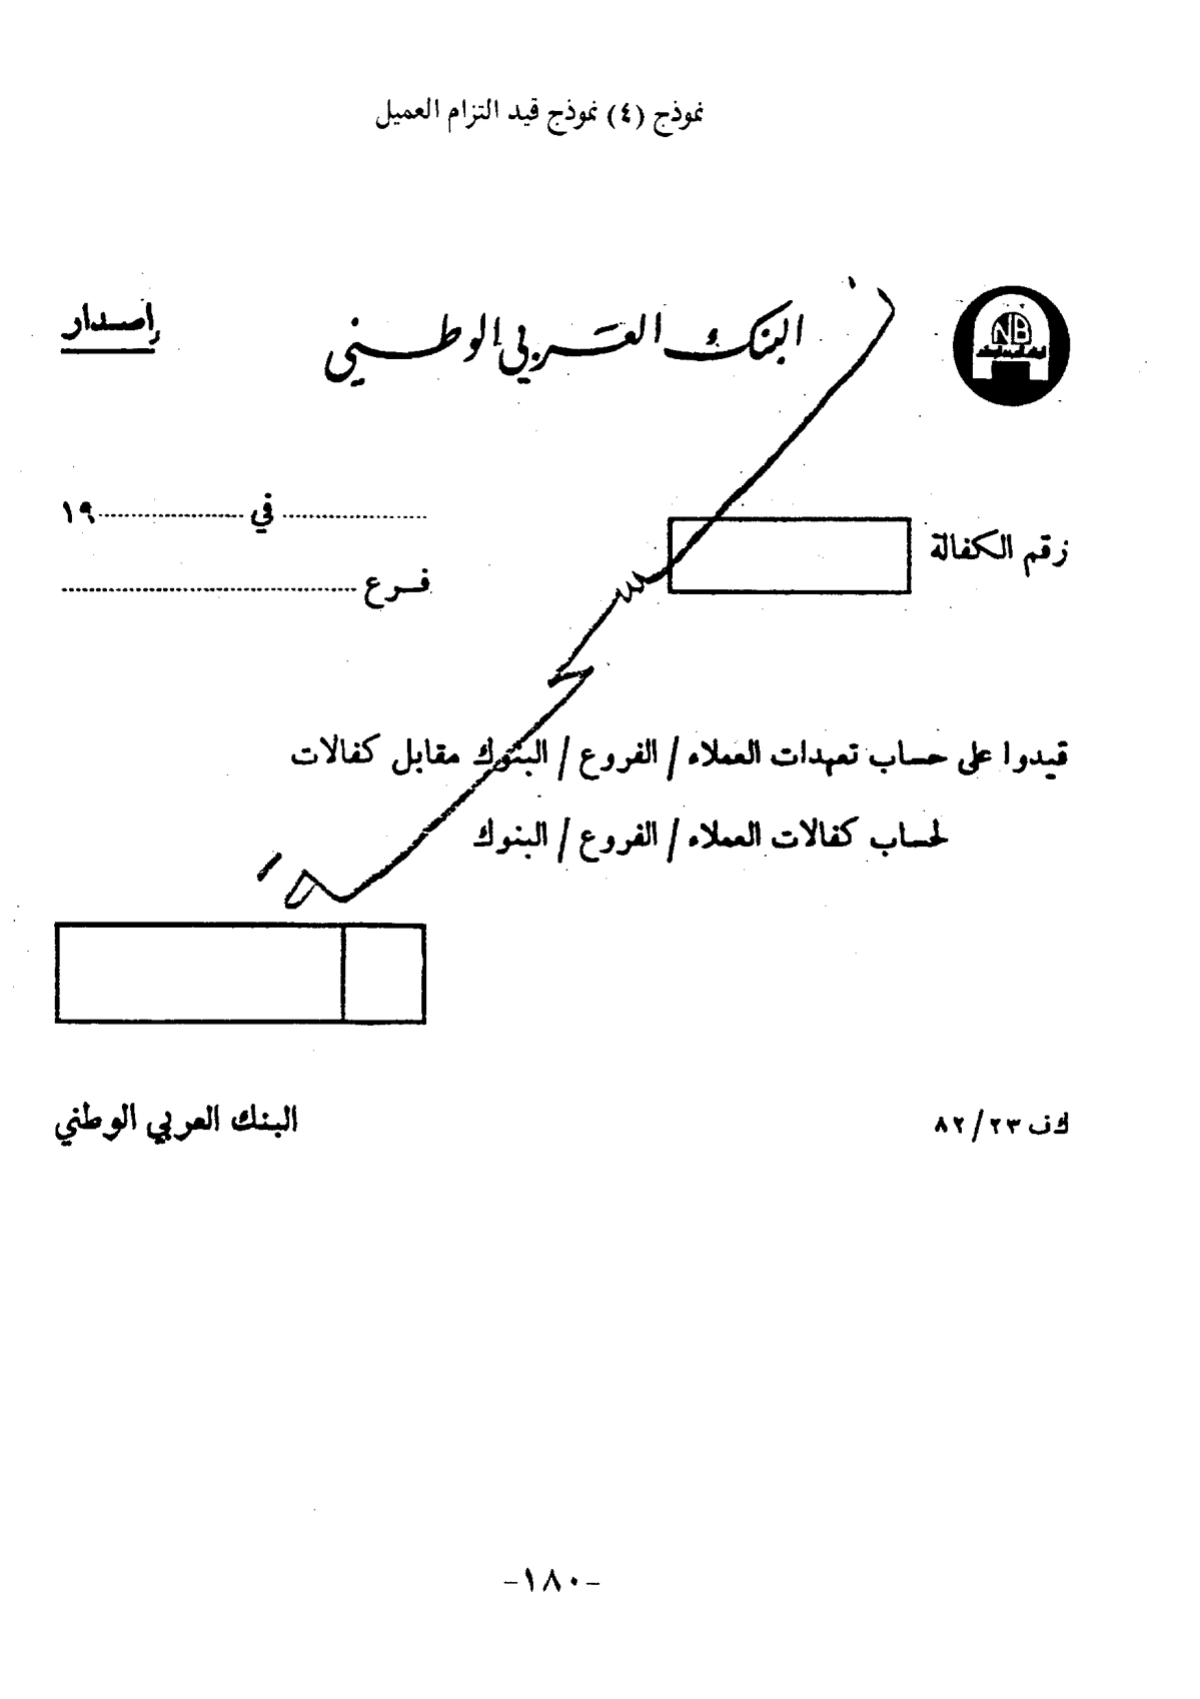 نموذج (٤) نموذج قيد التزام العميل
البنك العربي الوطني
إصدار
NB
رقم الكفالة
في ١٩
فرع
قيدوا على حساب تعهدات العملاء / الفروع / البنوك مقابل كفالات
لحساب كفالات العملاء / الفروع / البنوك
كف ٨٢/٢٣
البنك العربي الوطني
-١٨٠-